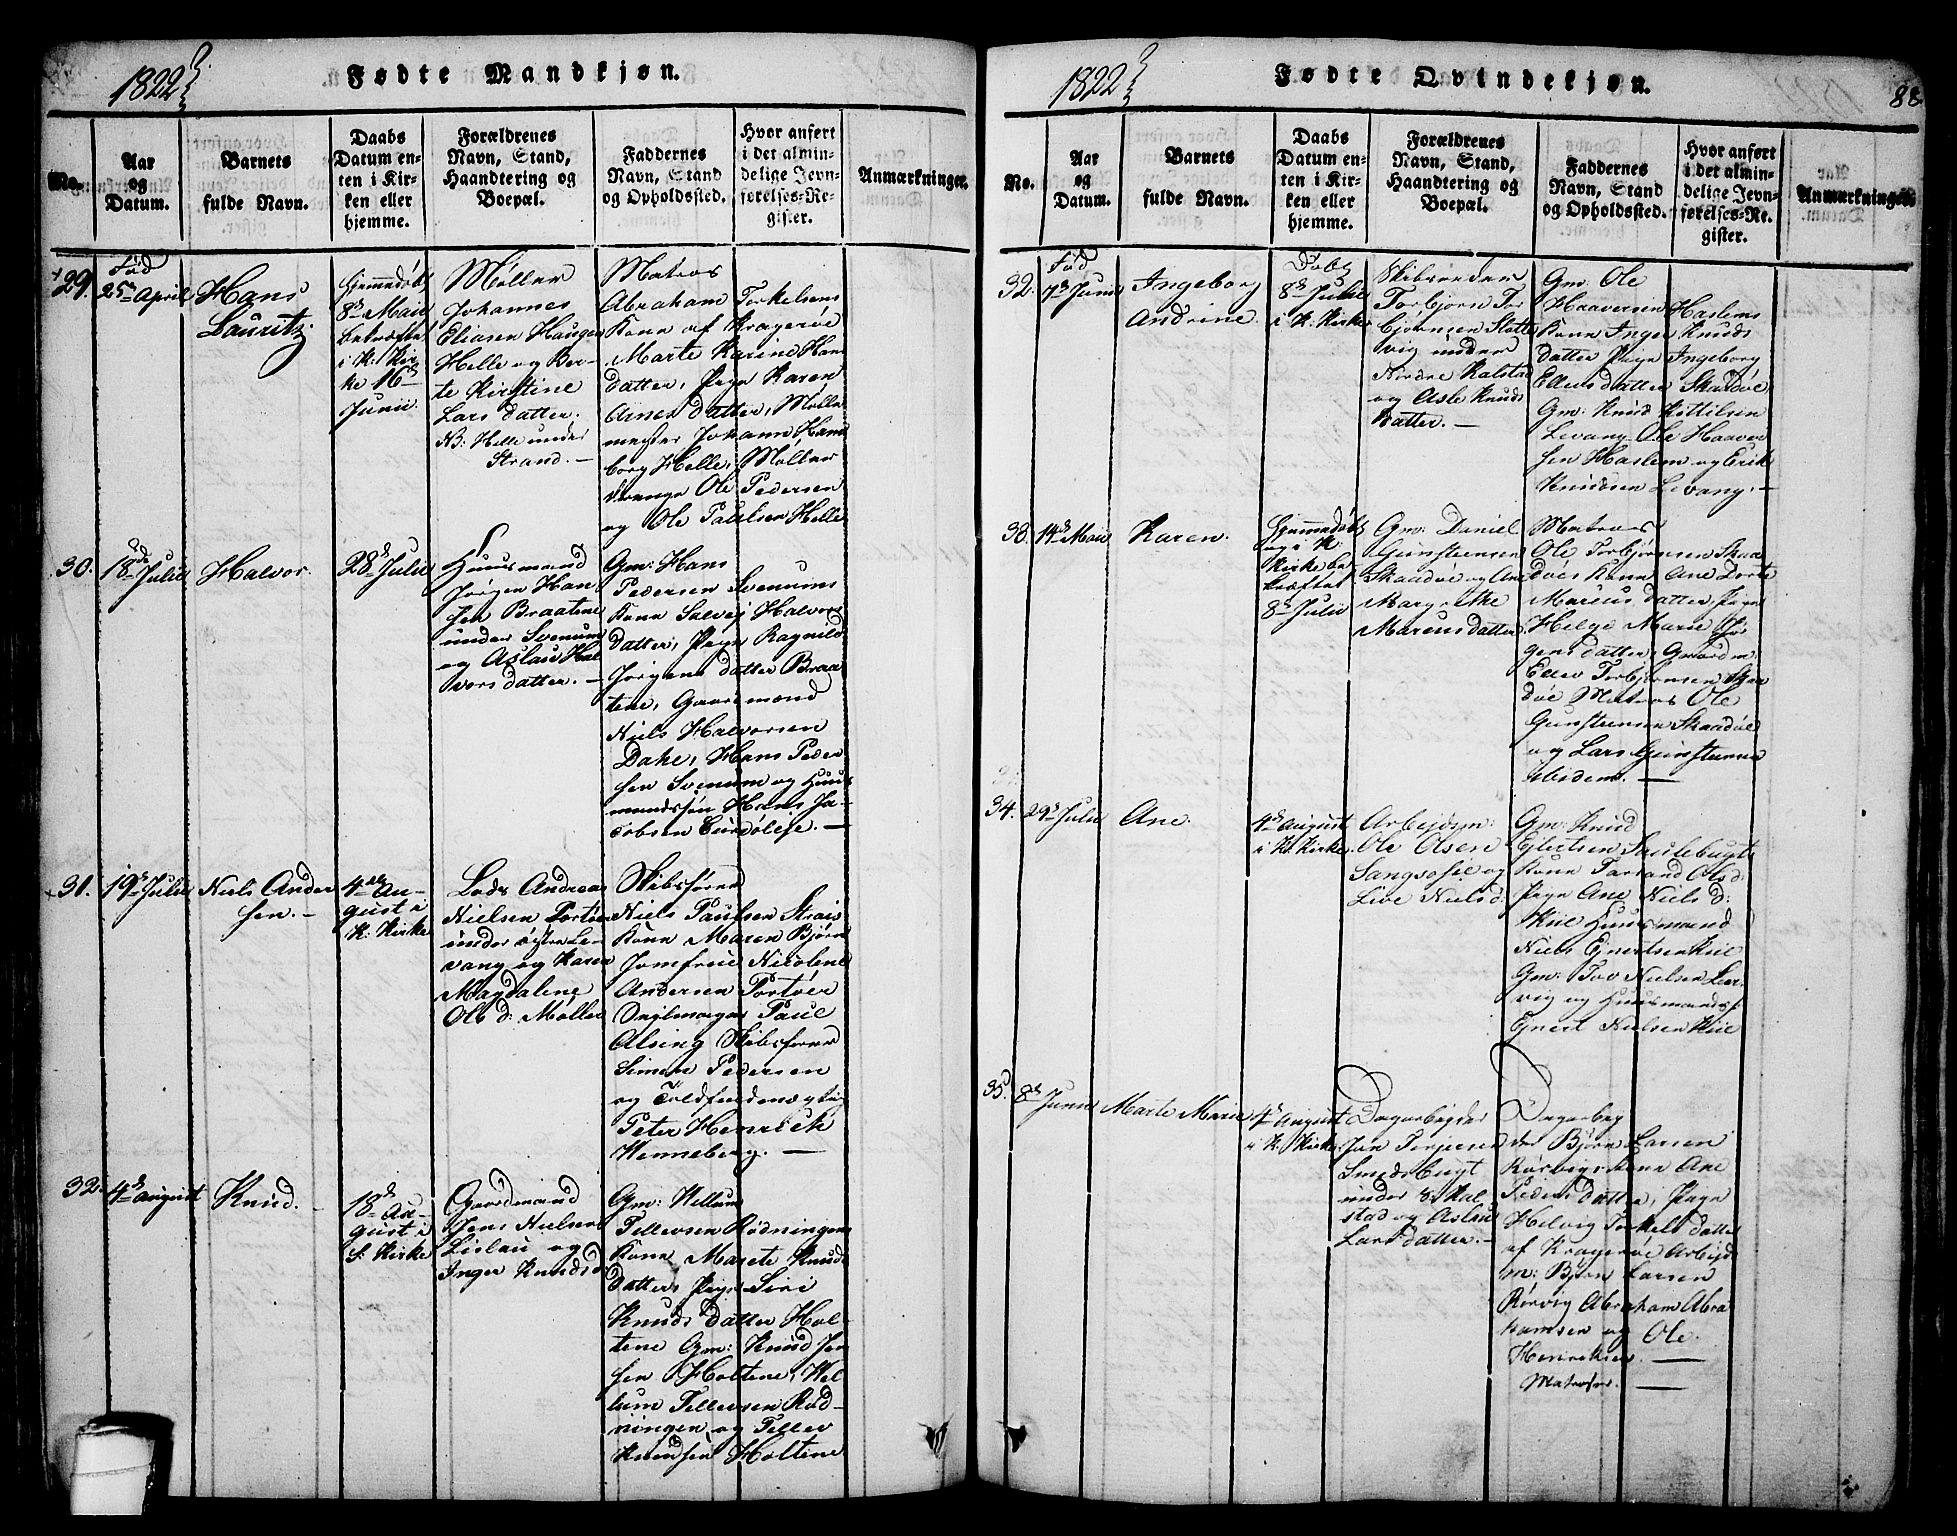 1822
Fødte Mandkjøn.
No.
Aar og Datum.
Barnets fulde Navn.
Daabs Datum enten i Kirken eller hjemme.
Forældrenes Navn, Stand, Haandtering og Boepæl.
Faddernes Navn, Stand og Opholdssted.
Hvor anført i det almindelige Jevnførelses-Register.
Anmærkninger.
29.
Fød
25de April
Hans
Lauritz
Hjemmedøbt
8de Maii
bekræftet
i K. Kir-
ke 16de
Junii.
Møller
Johannes
Eliasen Haugen
Helle og Ber-
te Kirstine
Lars datter.
NB: Helle under
Strand. —
Matros
Abraham Torkelsens
Kone af Kragerøe
Marte Karine Hans
datter, Pign Karen
Arnes datter, Mølle
mester Johann Ham
borg Helle, Møller
drenge Ole Pedersen
og Ole Paulsen Helle
30.
18de Julii
Halvor.
28de Julii
Huusmand
Jørgen Han
sen Braatene
under Svenum
og Aslau Hal
vors datter. —
Gm: Hans
Pedersen Svenums
Kone Salvej Halvors
datter, Pign Ragnild
Jørgens datter Braa
tene, Gaardmænd
Niels Halvorsen
Dahe, Hans Peder
sen Svenum og Huus
mandssøn Hans Ja-
cobsen
31.
19de Julii
Niels Ander
sen. —
4de Au-
gust i
K. Kirke
Lods Andreas
Nielsen Portøer
under østre Le-
vang og Karen
Magdalene
Ols d: Møller
Skibsfører
Niels Paulsen
Kone Maren Bjørn
Jomfrue Nicolene
Andersen Portøer
Paul
Alsing Skibsfører
Simon Pedersen
og
Peter Henrick
Wenneberg. —
32.
4de August
Knud.
18de Au-
gust i
S. Kirke
Gaardmand
Jens Nielsen
Lislau og
Inger Knudsd
Gm: Wellum
Tellevsen Rødningens
Kone Marete Knuds
datter, Pign Siri
Knuds datter Hol-
tene Gm: Knud Jen
sen Holtene, Wel
lum Tellevsen Rød-
ningen og Tellev
Knudsen Holtene
1822
Fødte Qvindekjøn.
88
No.
Aar og Datum.
Barnets fulde Navn.
Daabs Datum enten i Kirken eller hjemme.
Forældrenes Navn, Stand, Haandtering og Boepæl.
Faddernes Navn, Stand og Opholdssted.
Hvor anført i det almindelige Jevnførelses-Register.
Anmærkninger.
32.
Fød
7de Junii
Ingeborg
Andrine.
Døbt
8de Julii
i K. Kirke
Skibsreder
Torbjørn Tor
bjørnsen Slotte
vig under
Nordre Kalstad
og Asle Knuds
datter. —
Gm: Ole
Haaversen Haslems
Kone Inger Knuds
datter Pign Ingeborg
Ellevsdatter Skaadøe
Gm: Knud Kittilsen
Levang Ole Haaver
sen Haslem og Erik
Knudsen Levang. —
33.
14de Maii
Karen.
Hjemmedøbt
og i K.
Kirke be
kræftet
8de Julii
Gm: Daniel
Gunstensen
Skaadøe og Ane
Margrethe
Marcusdatter
Matros
Ole Torbjørnsen Skaa
døes Kone Ane Dorte
Marcus datter Pign
Helge Marie Jør
gensdatter, Gaardm
Ellev Torbjørnsen Skaa
døe Matros Ole
Gunstensen Skaadøe
og Lars Gunstensen
ibidem. —
34.
29de Julii
Ane.
4de August
i K. Kirke.
Arbejdsm:
Ole Olsen
Sangsosie og
Live Nielsd
Gm: Knud
Gjertsen Saulebugts
Kone Taraand Olsd:
Pign Ane Niels d:
Kiil Huusmænd
Niels Gjertsen Kiil
Gm: Tov Nielsen Leer
vig og Huusmands s:
Gjert Nielsen Kiil
35.
8de Junii
Marte Marie
4de August
i K. Kirke.
Dagarbejder
Jon Terjesen
Smedsbugt
under S: Kal
stad og Aslau
Lars datter. —
Dagarbej
der Bjørn Larsen
Rørvigs Kone Ane
Peders datter, Pign
Helvig Torkels datter
af Kragerøe Arbejds
m: Bjørn Larsen
Rørvig Abraham Abra
hamsen og Ole
Henriksen. —
Matroser. —